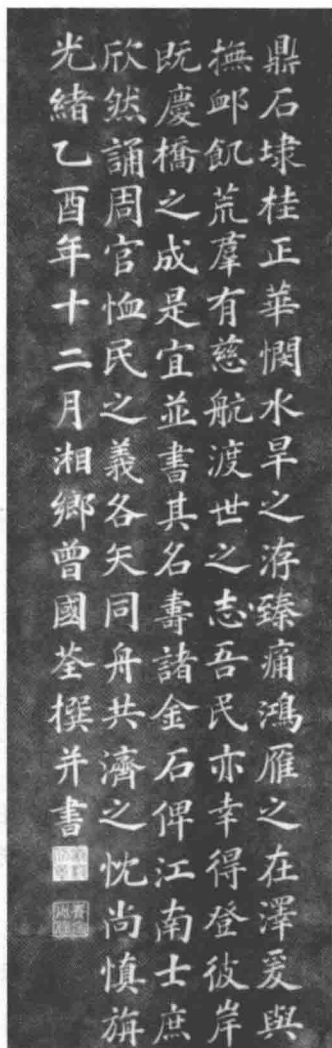 鼎石埭桂正華憫水旱之洊臻痛鴻雁之在澤爰與
撫邮飢荒羣有慈航渡世之志吾民亦幸得登彼岸
既慶橋之成是宜並書其名壽諸金石俾江南士庶
欣然誦周官恤民之義各矢同舟共濟之忱尚慎旃
光緒乙酉年十二月湘鄉曾國荃撰并書